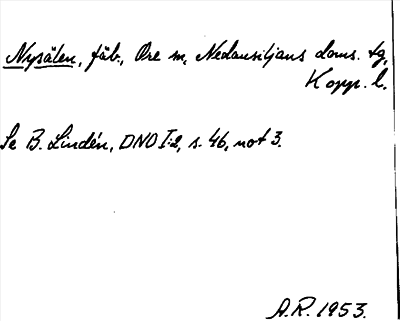 Nysäten, fäb., Ore sn, Nedansiljans doms. tg,
Kopp. l.
Se B. Lindén, DNO I:2, s. 46, not 3.
A.R. 1953.